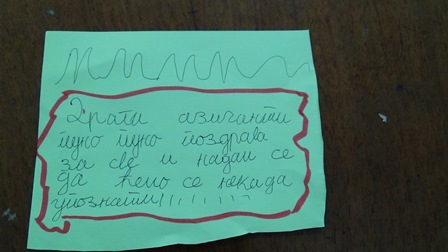 Драги азиланти
пуно пуно поздрава
за све и надам се
да ћемо се некада
упознати!!!!!!!!